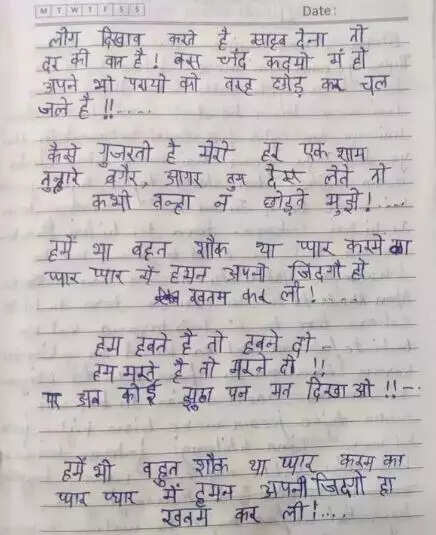 M T W T F S S
Date:
लोग दिखाव करते है साहब देना तो
दूर की बात है ! बस चंद कदमो में हो
अपने भी परायो को तरह छोड़ कर चल
जले है !!....
कैसे गुजरती है मेरी हर एक शाम
तुम्हारे बगैर, अगर तुम देख लेते तो
कभी तन्हा न छोड़ते मुझे !....
हमें भा बहुत शौक था प्यार करने का
प्यार प्यार में हमन अपनी जिंदगी हो
खतम कर ली !....
हम डूबते है तो डूबने दो
हम मरते है तो मरने दो !!
पर झूठा पन मत दिखाओ !!-..
हमें भी बहुत शौक था प्यार करम का
प्यार प्यार में हमन अपनी जिंदगी हा
खतम कर ली !....